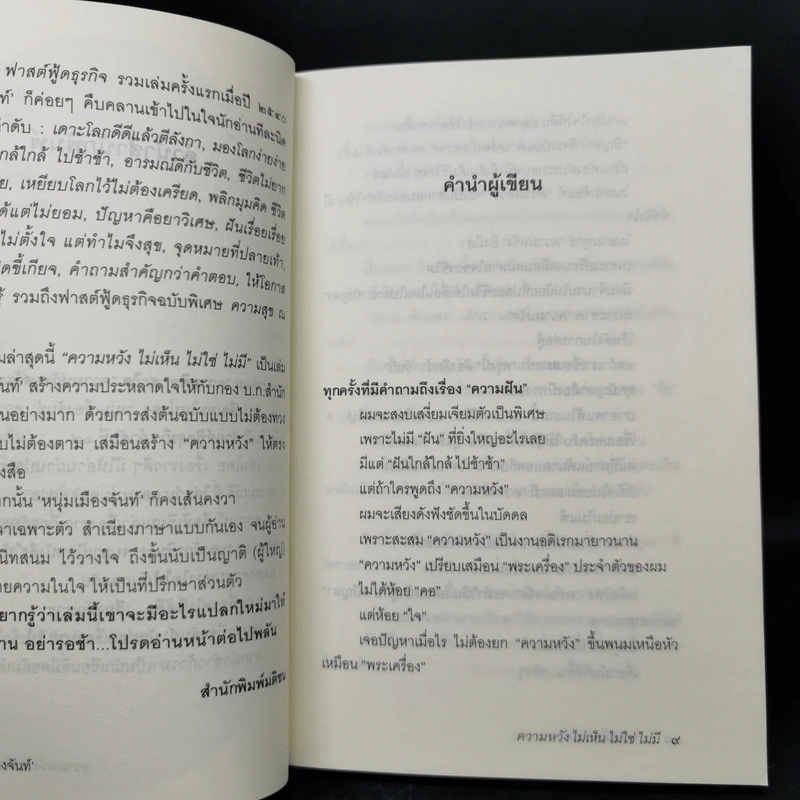 ฟาสต์ฟู้ดธุรกิจ รวมเล่มครั้งแรกเมื่อปี ๒๕๔๐
ท์' ก็ค่อยๆ คืบคลานเข้าไปในใจนักอ่านทีละนิด
ำดับ : เดาะโลกดีดีแล้วตีลังกา, มองโลกง่ายง่าย
กล้ใกล้ ไปช้าช้า, อารมณ์ดีกับชีวิต, ชีวิตไม่ยาก
ย, เหยียบโลกไว้ไม่ต้องเครียด, พลิกมุมคิด ชีวิต
ด้แต่ไม่ยอม, ปัญหาคือยาวิเศษ, ฝันเรื่อยเรื่อย
ไม่ตั้งใจ แต่ทำไมจึงสุข, จุดหมายที่ปลายเท้า,
ดขี้เกียจ, คำถามสำคัญกว่าคำตอบ, ให้โอกาส
รู้ รวมถึงฟาสต์ฟู้ดธุรกิจฉบับพิเศษ ความสุข ณ
มล่าสุดนี้ "ความหวัง ไม่เห็น ไม่ใช่ ไม่มี" เป็นเล่ม
จันท์' สร้างความประหลาดใจให้กับกอง บ.ก.สำนัก
นอย่างมาก ด้วยการส่งต้นฉบับแบบไม่ต้องทวง
บไม่ต้องตาม เสมือนสร้าง "ความหวัง" ให้ตรง
สือ
กนั้น 'หนุ่มเมืองจันท์' ก็คงเส้นคงวา
าเฉพาะตัว สำเนียงภาษาแบบกันเอง จนผู้อ่าน
นิทสนม ไว้วางใจ ถึงขั้นนับเป็นญาติ (ผู้ใหญ่)
ายความในใจ ให้เป็นที่ปรึกษาส่วนตัว
ยากรู้ว่าเล่มนี้เขาจะมีอะไรแปลกใหม่มาให้
าน อย่ารอช้า...โปรดอ่านหน้าต่อไปพลัน
สำนักพิมพ์มติชน
งจันท์'
คำนำผู้เขียน
ทุกครั้งที่มีคำถามถึงเรื่อง "ความฝัน"
ผมจะสงบเสงี่ยมเจียมตัวเป็นพิเศษ
เพราะไม่มี "ฝัน" ที่ยิ่งใหญ่อะไรเลย
มีแต่ "ฝันใกล้ใกล้ ไปช้าช้า"
แต่ถ้าใครพูดถึง "ความหวัง"
ผมจะเสียงดังฟังชัดขึ้นในบัดดล
เพราะสะสม "ความหวัง" เป็นงานอดิเรกมายาวนาน
"ความหวัง" เปรียบเสมือน "พระเครื่อง" ประจำตัวของผม
ไม่ได้ห้อย "คอ"
แต่ห้อย "ใจ"
เจอปัญหาเมื่อไร ไม่ต้องยก "ความหวัง" ขึ้นพนมเหนือหัว
เหมือน "พระเครื่อง"
ความหวัง ไม่เห็น ไม่ใช่ ไม่มี ๙